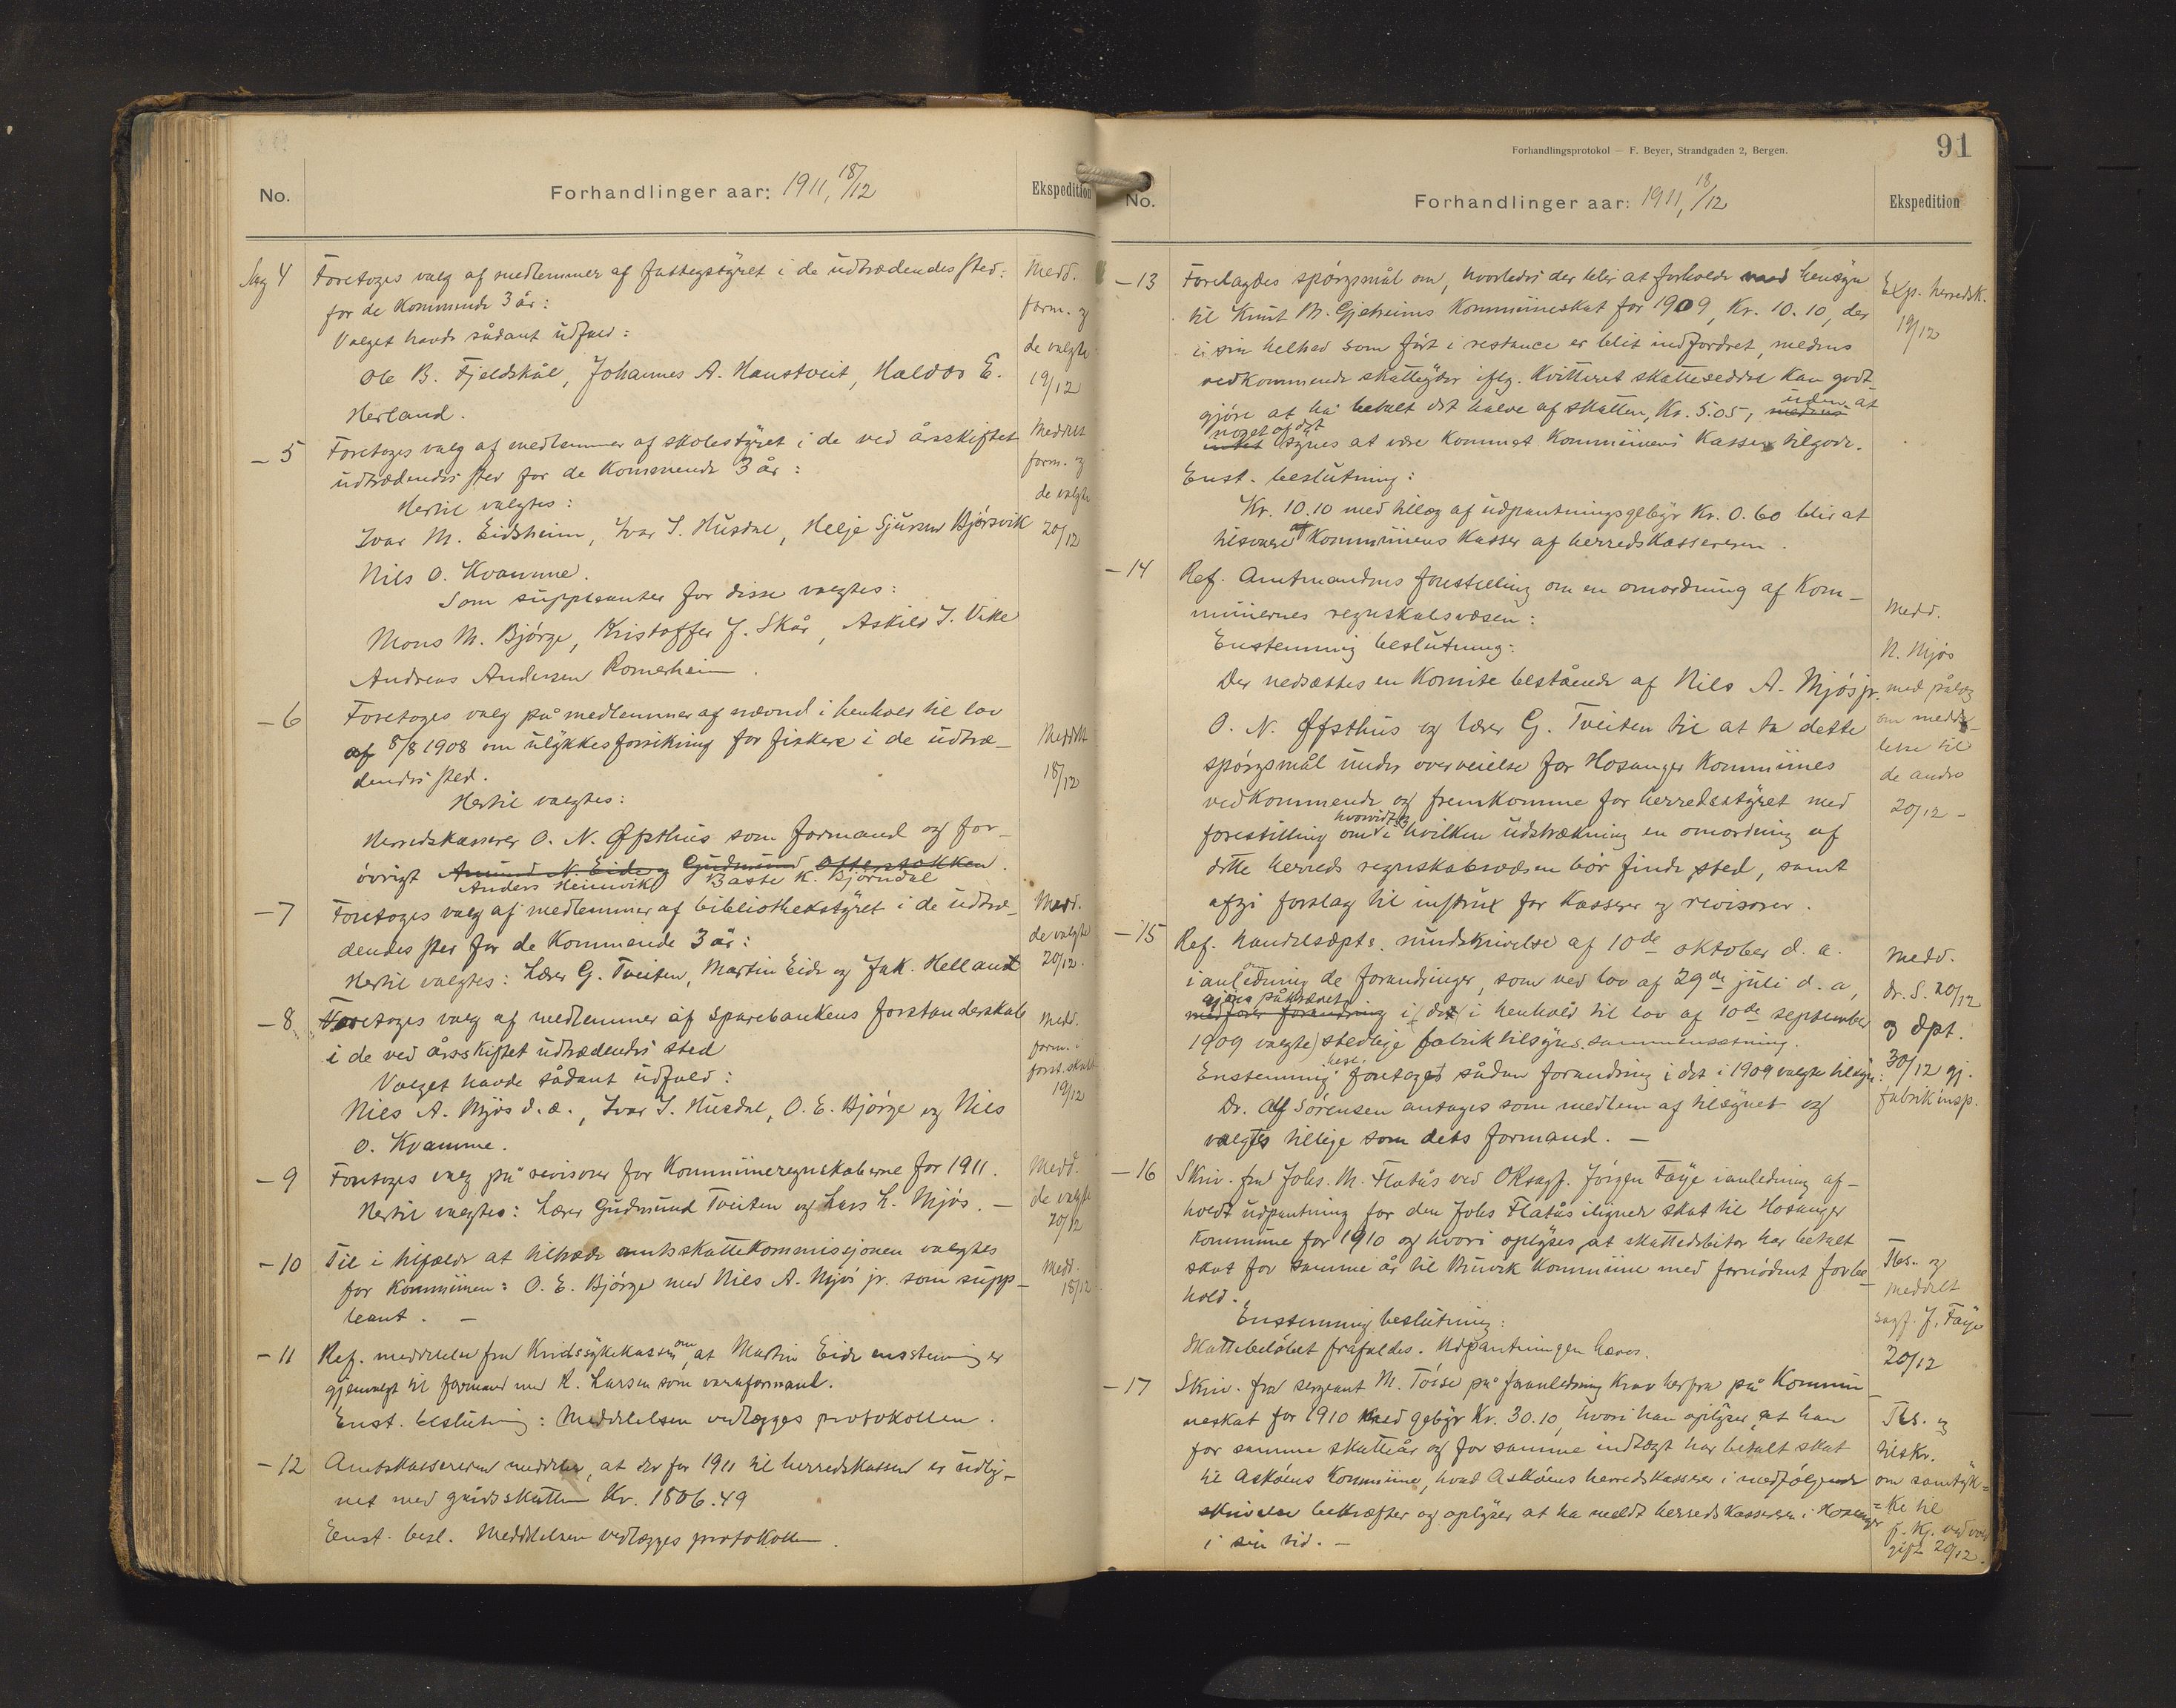 No.
Forhandlinger aar: 1911, 18/12
Ekspedition
Sag 4
Foretoges valg af medlemmer af fattigstyret i de udtrædendes sted:
for de kommende 3 år:
Valget havde sådant udfald:
Ole B. Fjeldskål, Johannes A. Haustveit, Haldor E.
Herland.
Medd.
form. og
de valgte
19/12
- 5
Foretoges valg af medlemmer af skolestyret i de ved årsskiftet
udtrædendes sted for de kommende 3 år:
Hertil valgtes:
Ivar M. Eidsheim, Ivar S. Husdal, Helje Sjursen Bjørsvik
Nils O. Kvamme.
Som suppleanter for disse valgtes:
Mons M. Bjørge, Kristoffer J. Skår, Askild J. Vike
Andreas Andersen Romerheim.
Meddelt
form. og
de valgte
20/12
- 6
Foretoges valg på medlemmer af nævnd i henhold til lov
af 8/8 1908 om ulykkesforsikring for fiskere i de udtræ-
dendes sted.
Hertil valgtes:
Herredskasserer O. N. Øfsthus som formand og for-
øvrigt Amund N. Eide og Gudmund Otterstakken.
Anders Heimvik Baste K. Bjørndal
Meddelt
18/12
- 7
Foretoges valg af medlemmer af bibliothekstyret i de udtræ-
dendes sted for de kommende 3 år:
Hertil valgtes: Lærer G. Tveiten, Martin Eide og Jak. Helland
Medd.
de valgte
20/12.
- 8
Foretoges valg af medlemmer af sparebankens forstanderskab
i de ved årsskiftet udtrædendes sted
Valget havde sådant udfald:
Nils A. Mjøs d. æ., Ivar S. Husdal, O. E. Bjørge og Nils
O. Kvamme.
Medd.
form. i
forst.skab
19/12
- 9
Foretoges valg på revisorer for Kommuneregnskaberne for 1911.
Hertil valgtes: Lærer Gudmund Tveiten og Lars L. Mjøs. -
Medd.
de valgte
20/12
- 10
Til i tilfælde at tiltræde amtsskattekommissjonen valgtes
for kommunen: O. E. Bjørge med Nils A. Mjøs jr. som supp-
leant. -
Medd.
18/12
- 11
Ref. meddelelse fra Kredssykekassen om, at Martin Eide ensstemmig er
gjenvalgt til formand med K. Larsen som varaformand.
Enst. beslutning: Meddelelsen vedlægges protokollen.
- 12
Amtskassereren meddeler, at der for 1911 til herredskassen er udlig-
net med godsskatten Kr. 1806.49
Enst. besl. Meddelelsen vedlægges protokollen.
Forhandlingsprotokol — F. Beyer, Strandgaden 2, Bergen.
91
No.
Forhandlinger aar: 1911, 18/12
Ekspedition
- 13
Forelagdes spørgsmål om, hvorledes der blir at forholde med hensyn
til Knut M. Gjeheims Kommuneskat for 1909, Kr. 10.10, der
i sin helhed som ført i restance er blit indfordret, medens
vedkommende skatteyder iflg. kvitteret skatteseddel kan godt-
gjøre at ha betalt det halve af skatten, Kr. 5.05, medens uden at
intet noget af det synes at være kommet Kommunens Kasse tilgode.
Enst. beslutning:
Kr. 10.10 med tillæg af udpantningsgebyr Kr. 0.60 blir at
tilsvare Kommunens Kasse af herredskassereren.
Exp. herredsk.
19/12
- 14
Ref. Amtmandens forestilling om en omordning af Kom-
munernes regnskabsvæsen:
Enstemmig beslutning:
Der nedsættes en Komite bestående af Nils A. Mjøs jr.
O. N. Øfsthus og lærer G. Tveiten til at ta dette
spørgsmål under overveielse for Hosanger Kommunes
vedkommende og fremkomme for herredsstyret med
forestilling om hvorvidt og i hvilken udstrækning en omordning af
dette herreds regnskabsvæsen bør finde sted, samt
afgi forslag til instrux for Kasserer og revisorer.
Medd.
N. Mjøs
med pålæg
om medde-
lelse til
de andre
20/12 -
- 15
Ref. Handelsdpts. rundskrivelse af 10de oktober d. a.
i anledning de forandringer, som ved lov af 29de juli d. a,
medfører forandring gjøres påkrævet i (det i henhold til lov af 10de september
1909 valgte) stedlige fabriktilsyns sammensætning.
Enstemmig besl. foretoges sådan forandring i det i 1909 valgte tilsyn:
Dr. Alf Sørensen antages som medlem af tilsynet og
valgtes tillige som dets formand. -
Medd.
dr. S. 20/12
og dpt.
30/12 gj.
fabrikinsp.
- 16
Skriv. fra Johs. M. Flatås ved O.Rsagf. Jørgen Faye i anledning af-
holdt udpantning for den Johs Flatås ilignede skat til Hosanger
Kommune for 1910 og hvori oplyses, at skattedebitor har betalt
skat for samme år til Bruvik Kommune med fornødent forbe-
hold.
Enstemmig beslutning:
Skattebeløbet frafaldes. Udpantningen hæves.
Tbs. og
meddelt
sagf. J. Faye
20/12
- 17
Skriv. fra sergeant M. Tøsse på foranledning krav herfra på Kommu-
neskat for 1910 med gebyr Kr. 30.10, hvori han oplyser, at han
for samme skatteår og for samme indtægt har betalt skat
til Askøens Kommune, hvad Askøens herredskasserer i medfølgende
skrivelse bekræfter og oplyser at ha meldt herredskassereren i Hosanger
i sin tid. -
Tbs. og
tilskr.
om samtyk=
=ke til
20/12.